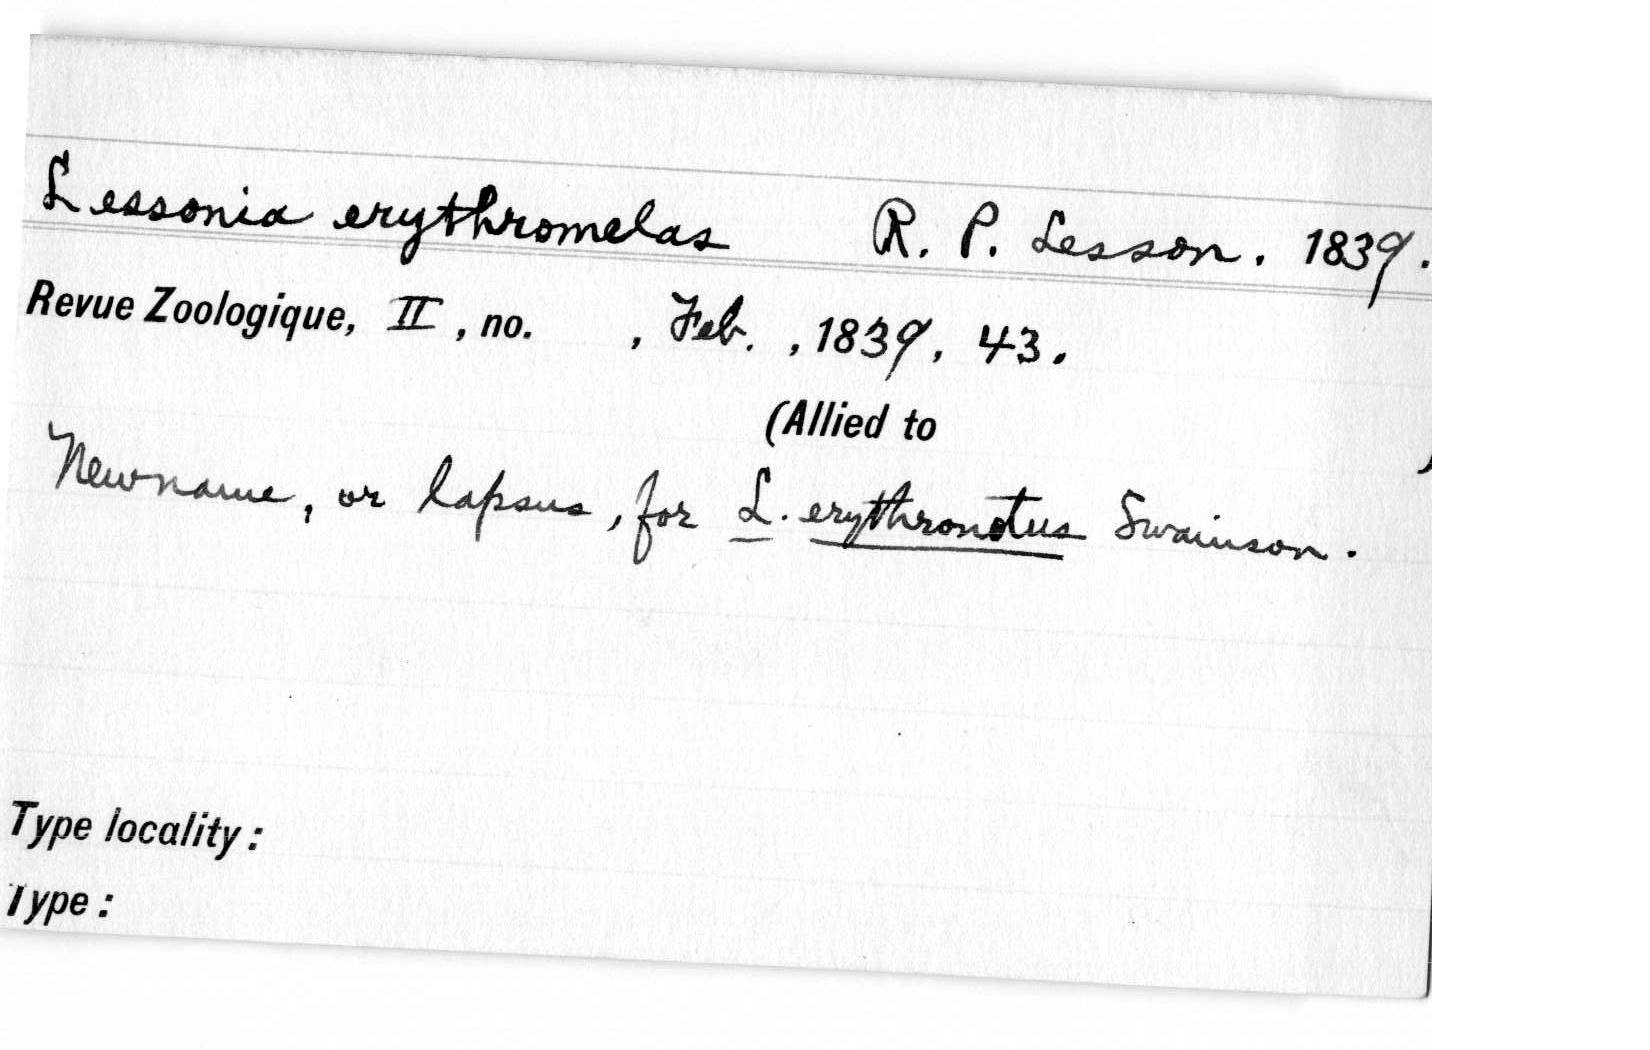 Lessonia erythromelas R. P. Lesson. 1839.
Revue Zoologique, II, no. , Feb. , 1839, 43.
(Allied to )
New name, or lapsus, for L. erythronotus Swainson.
Type locality:
Type: